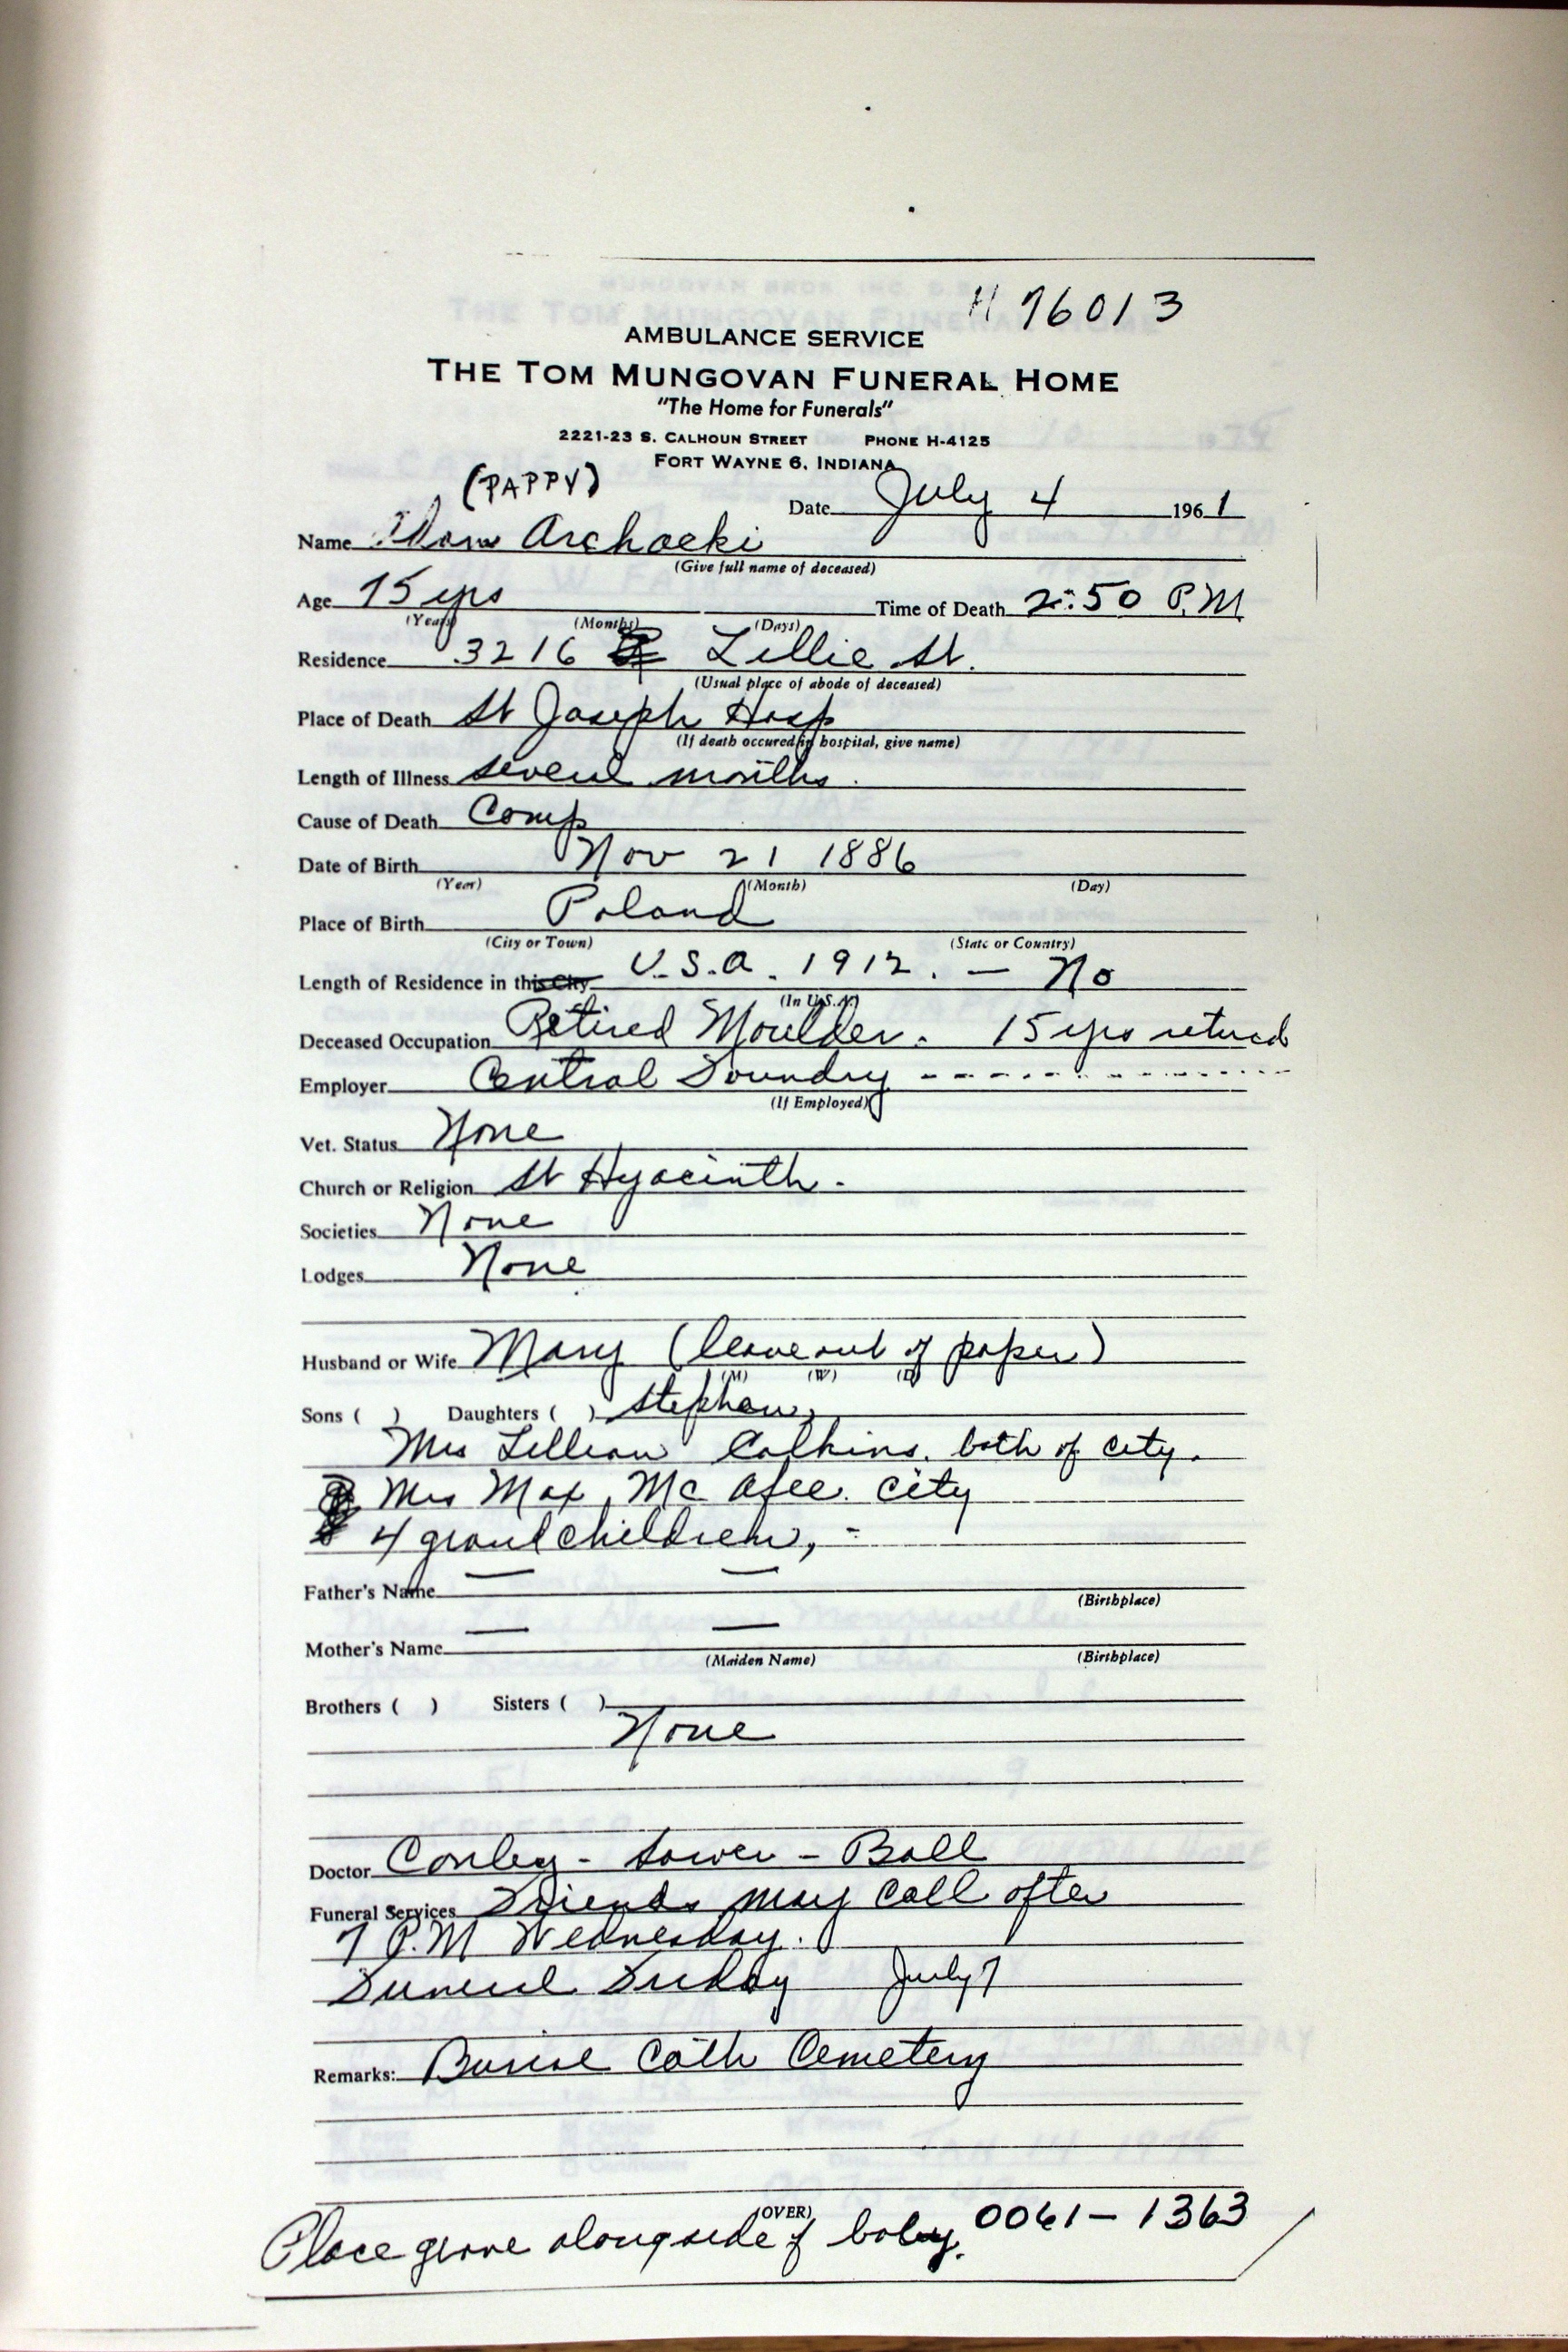 H 76013
AMBULANCE SERVICE
THE TOM MUNGOVAN FUNERAL HOME
"The Home for Funerals"
2221-23 S. CALHOUN STREET PHONE H-4125
FORT WAYNE 6, INDIANA
(PAPPY)
Date July 4 1961
Name Adam Archacki
(Give full name of deceased)
Age 75 yrs Time of Death 2:50 P.M
(Years) (Months) (Days)
Residence 3216 Lillie St.
(Usual place of abode of deceased)
Place of Death St Joseph Hosp
(If death occured in hospital, give name)
Length of Illness several months.
Cause of Death Comp
Date of Birth Nov 21 1886
(Year) (Month) (Day)
Place of Birth Poland
(City or Town) (State or Country)
Length of Residence in this City U.S.A. 1912. — No
(In U.S.A.)
Deceased Occupation Retired Moulder. 15 yrs retired
Employer Central Foundry
(If Employed)
Vet. Status None
Church or Religion St Hyacinth.
Societies None
Lodges None
Husband or Wife Mary (leave out of paper)
(M) (W) (D)
Sons ( ) Daughters ( ) Stephen,
Mrs Lillian Calkins. both of city.
Mrs Max Mc Afee. City
4 grandchildren, -
Father's Name — —
(Birthplace)
Mother's Name — —
(Maiden Name) (Birthplace)
Brothers ( ) Sisters ( )
None
Doctor Conley - Sower - Ball
Funeral Services Friends may call after
7 P.M Wednesday.
Funeral Friday July 7
Remarks: Burial Cath Cemetery
(OVER)
0061-1363
Place grave alongside of baby.